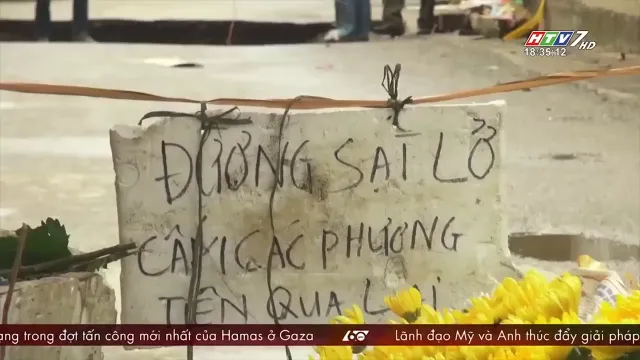 HTV7 HD
18:35:12
ĐƯỜNG SẠT LỞ
CẤM CÁC PHƯƠNG
TIỆN QUA LẠI
ang trong đợt tấn công mới nhất của Hamas ở Gaza
60
Lãnh đạo Mỹ và Anh thúc đẩy giải pháp